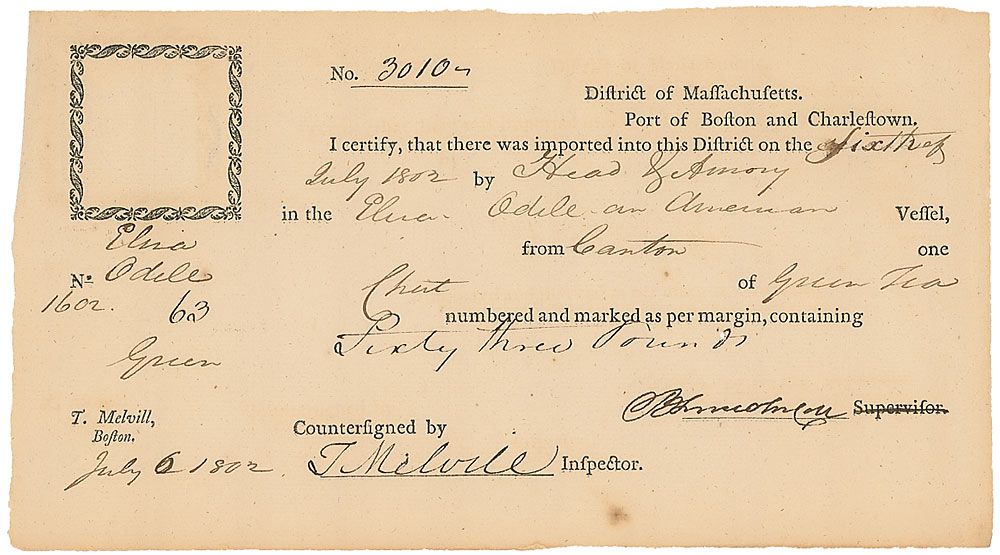 No. 3010
Diſtrict of Maſſachuſetts.
Port of Boſton and Charleſtown.
I certify, that there was imported into this Diſtrict on the Sixth of
July 1802 by Head & Amory
in the Eliza Odell an American Veſſel,
from Canton one
Chest of Green Tea
numbered and marked as per margin, containing
Sixty three Pounds
Eliza
No. Odell
1602. 63
Green
Superviſor.
T. Melvill,
Boſton.
July 6 1802
Counterſigned by
T Melvill Inſpector.